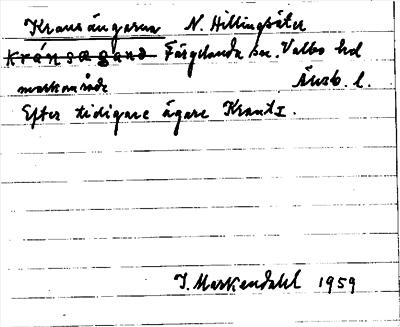 Kransängarna N. Hillingsäter
kránsæŋaná Färgelanda sn. Valbo hd
markområde Älvsb. l.
Efter tidigare ägare Krantz.
J. Markendahl 1959